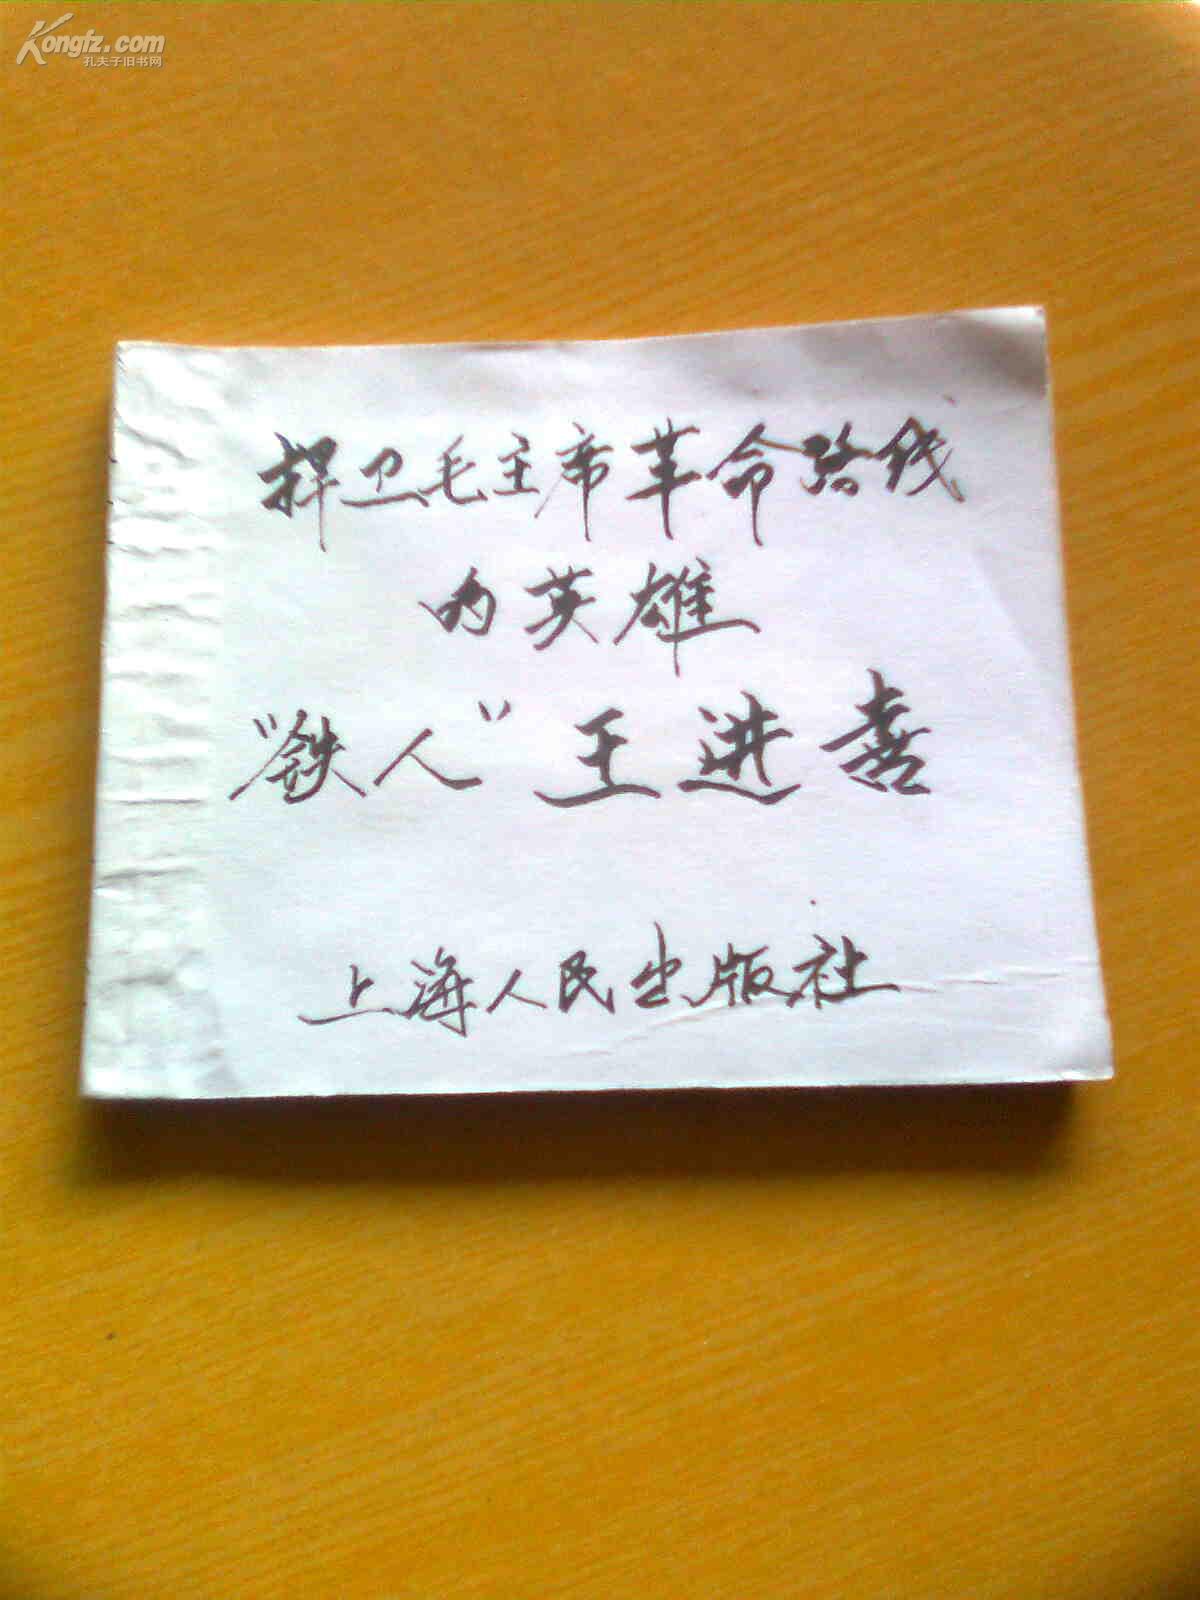 Kongfz.com
孔夫子旧书网
捍卫毛主席革命路线
的英雄
“铁人”王进喜
上海人民出版社